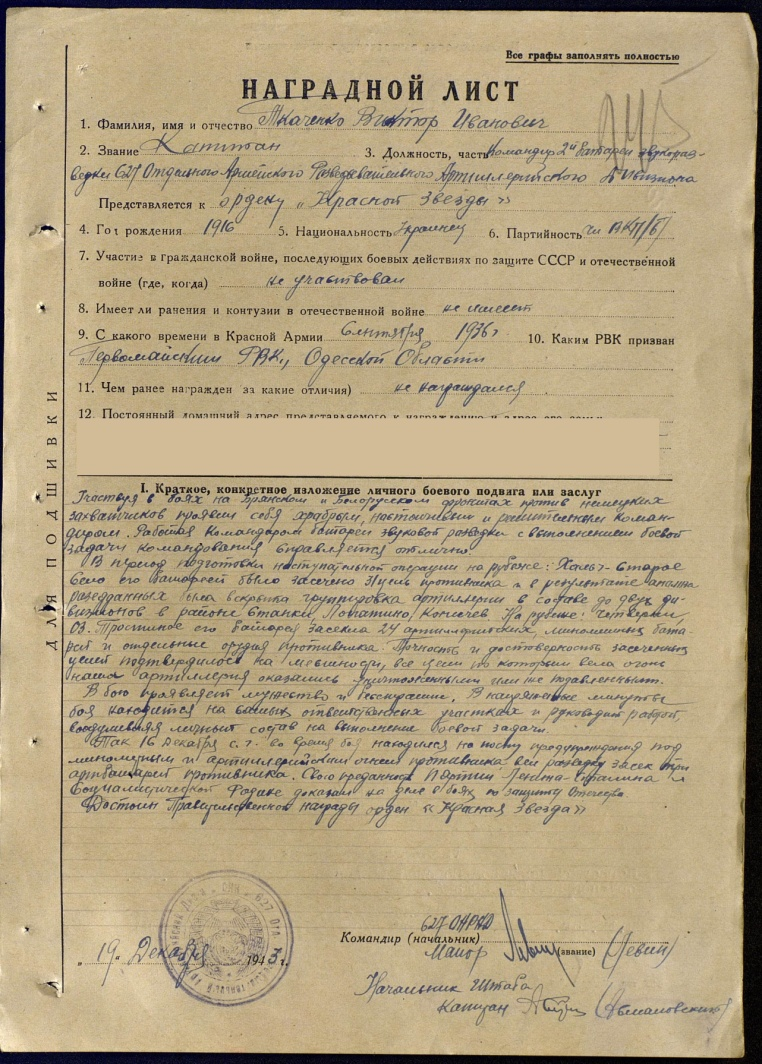 Все графы заполнять полностью
НАГРАДНОЙ ЛИСТ
1. Фамилия, имя и отчество Ткаченко Виктор Иванович
2. Звание Капитан 3. Должность, часть Командир 2й батареи звукораз-
ведки 627 Отдельного Армейского Разведывательного Артиллерийского Дивизиона
Представляется к ордену „Красной Звезды»
4. Год рождения 1916 5. Национальность Украинец 6. Партийность чл ВКП/б/
7. Участие в гражданской войне, последующих боевых действиях по защите СССР и отечественной
войне (где, когда) не участвовал
8. Имеет ли ранения и контузии в отечественной войне не имеет
9. С какого времени в Красной Армии Сентября 1936г 10. Каким РВК призван
Первомайским РВК, Одесской Области
11. Чем ранее награжден за какие отличия) не награждался
12. Постоянный домашний адрес представляемого к награждению и адрес его семьи
ДЛЯ ПОДШИВКИ
I. Краткое, конкретное изложение личного боевого подвига или заслуг
Участвуя в боях на Брянском и Белорусском фронтах против немецких
захватчиков проявил себя храбрым, настойчивым и решительным коман-
диром. Работая Командиром батареи звуковой разведки с выполнением боевой
задачи командования справляется отлично
В период подготовки наступательной операции на рубеже: Хальч-Старое
село его батареей было засечено 31 цель противника и в результате анализа
разведданных была вскрыта группировка артиллерии в составе до двух ди-
визионов в районе Станки Лопатино, На рубеже: Четверня,
Оз. его батарея засекла 24 артиллерийских, минометных бата-
рей и отдельных орудия противника. Точность и достоверность засеченных
целей подтвердилось на местности, все цели по которым вела огонь
наша артиллерия оказались уничтоженными или же подавленными.
В бою проявляет мужество и бесстрашие. В напряженные минуты
боя находится на самых ответственных участках и руководит работой,
воодушевляя личный состав на выполнение боевой задачи.
Так 16 декабря с.г. во время боя находился на посту предупреждения под
минометным и артиллерийским огнем противника вел разведку засек три
артбатареи противника. Свою преданность Партии Ленина-Сталина и
Социалистической Родине доказал на деле в боях по защите Отечества
Достоин Правительственной награды орден «Красная Звезда»
627 ОАРАД
Командир (начальник)
Майор (звание) (Левин)
„19„ Декабря 1943 г.
Начальник Штаба
Капитан